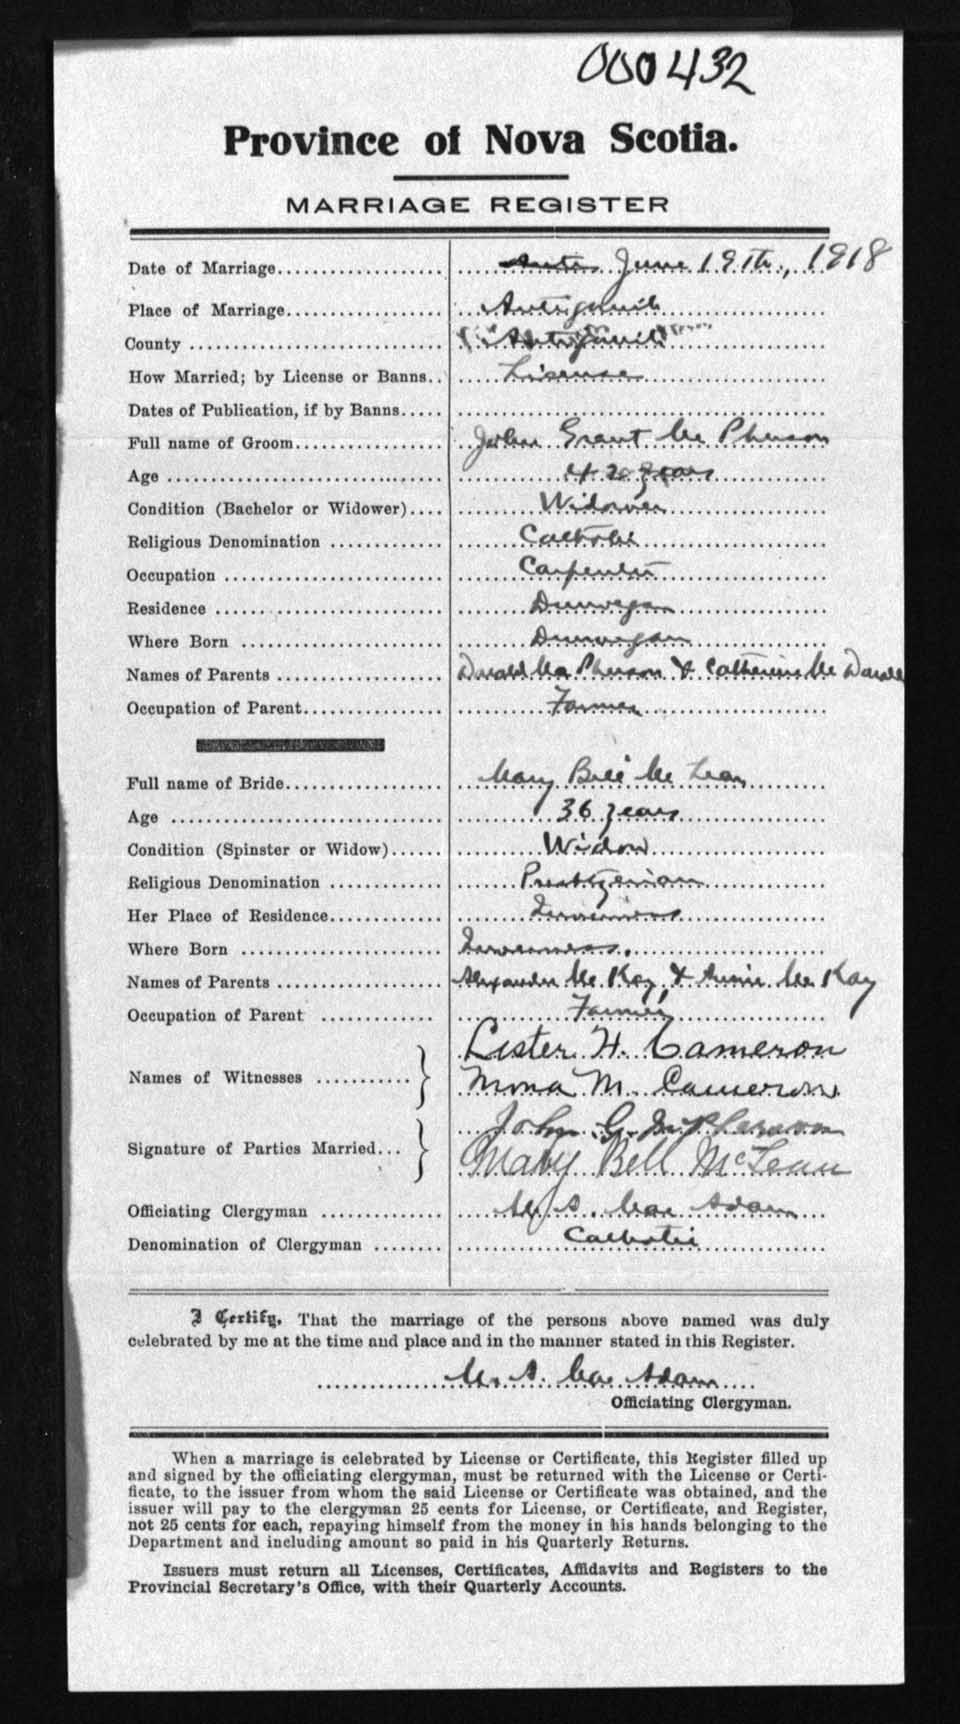 000432
Province of Nova Scotia.
MARRIAGE REGISTER
Date of Marriage.................... June 19th., 1918
Place of Marriage.................. Antigonish
County .......................... Antigonish
How Married; by License or Banns.. License
Dates of Publication, if by Banns.....
Full name of Groom................. John Grant McPherson
Age ........................... 42 years
Condition (Bachelor or Widower).... Widower
Religious Denomination .............. Catholic
Occupation ....................... Carpenter
Residence ....................... Dunvegan
Where Born ...................... Dunvegan
Names of Parents ................. Donald McPherson & Catherine Mc
Occupation of Parent................ Farmer
Full name of Bride.................. Mary Bell McLean
Age ........................... 36 years
Condition (Spinster or Widow)...... Widow
Religious Denomination .............. Presbyterian
Her Place of Residence.............. Inverness
Where Born ...................... Inverness.
Names of Parents ................. Alexander McKay & Annie McKay
Occupation of Parent .............. Farmer
Names of Witnesses ........... Lister H. Cameron
Mona M. Cameron
Signature of Parties Married... John G. McPherson
Mary Bell McLean
Officiating Clergyman .............. A. MacAdam
Denomination of Clergyman ........ Catholic
I Certify, That the marriage of the persons above named was duly
celebrated by me at the time and place and in the manner stated in this Register.
A. MacAdam
Officiating Clergyman.
When a marriage is celebrated by License or Certificate, this Register filled up
and signed by the officiating clergyman, must be returned with the License or Certi-
ficate, to the issuer from whom the said License or Certificate was obtained, and the
issuer will pay to the clergyman 25 cents for License, or Certificate, and Register,
not 25 cents for each, repaying himself from the money in his hands belonging to the
Department and including amount so paid in his Quarterly Returns.
Issuers must return all Licenses, Certificates, Affidavits and Registers to the
Provincial Secretary's Office, with their Quarterly Accounts.